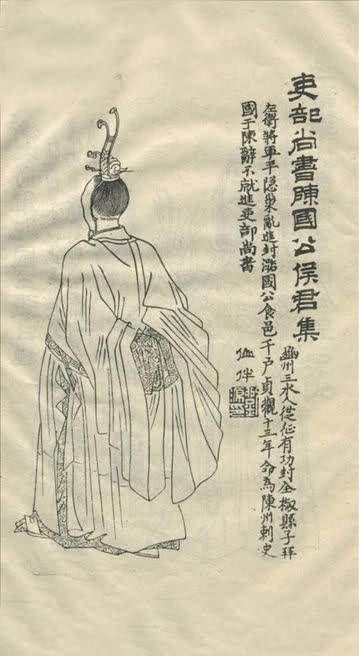 吏部尚書陳國公侯君集
豳州三水人從征有功封全椒縣子拜
左衛將軍平隐巢亂進封潞國公食邑千戶貞觀十三年命為陳州刺史
國于陳辭不就進吏部尚書